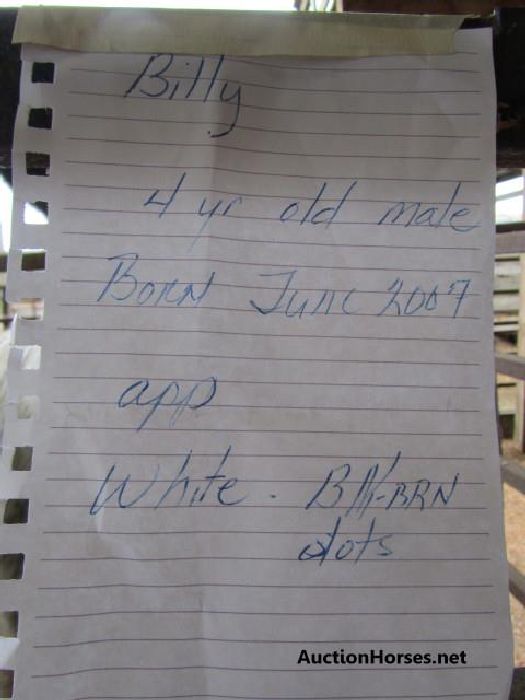 Billy
4 yr old male
Born June 2007
app
White. Blk-BRN
dots
AuctionHorses.net